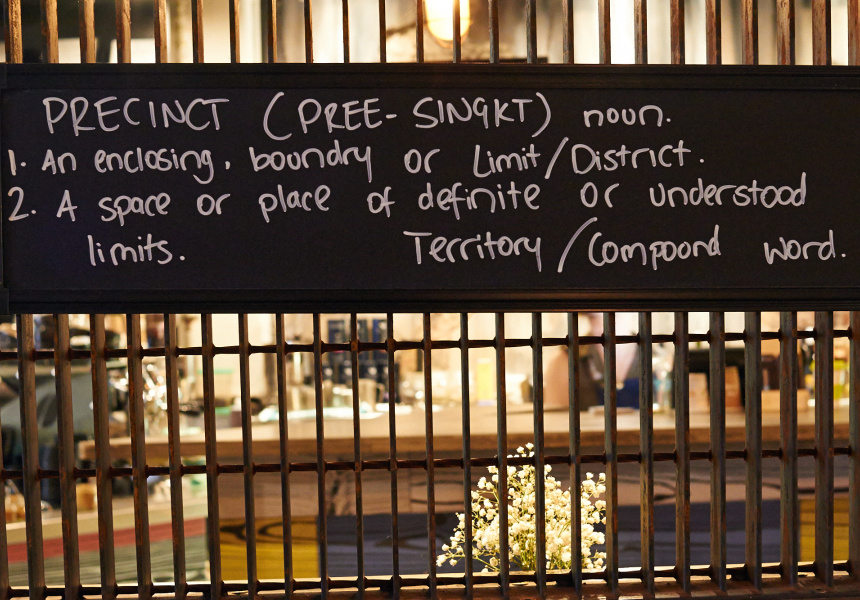 PRECINCT (PREE-SINGKT) noun.
1. An enclosing, boundry or Limit/District.
2. A space or place of definite or understood
limits. Territory/Compoond word.